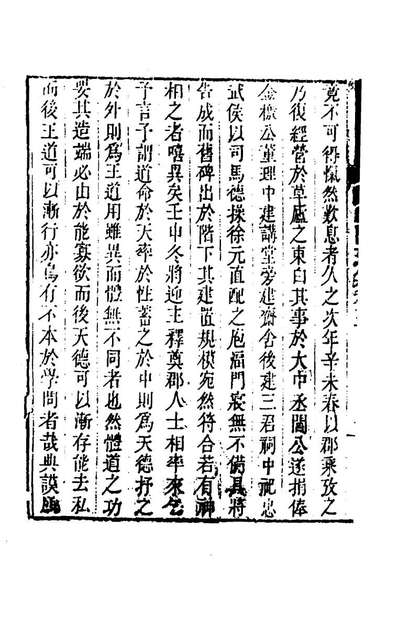 竟不可得愾然歎息者久之次年辛未春以郡乘攷之
乃復經營於草廬之東白其事於大中丞閻公遂捐俸
金檄公董理中建講堂旁建齋舍後建三君祠中祀忠
武侯以司馬德操徐元直配之庖湢門寢無不備具將
告成而舊碑出於階下其建置規模宛然符合若有神
相之者嘻異矣壬申冬將迎主釋奠郡人士相率來乞
予言予謂道命於天率於性蓄之於中則爲天德抒之
於外則爲王道用雖異而體無不同者也然體道之功
要其造端必由於能寡欲而後天德可以漸存能去私
而後王道可以漸行亦烏有不本於學問者哉典謨